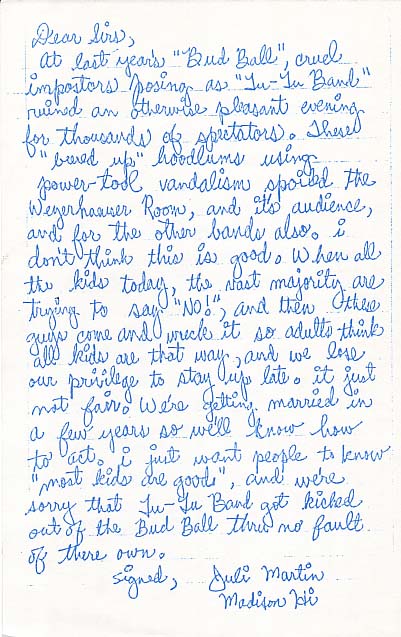 Dear Sirs,
At last year's "Bud Ball", cruel
impostors posing as "Tu-Tu Band"
ruined an otherwise pleasant evening
for thousands of spectators. These
"beered up" hoodlums using
power-tool vandalism spoiled the
Weyerhauser Room, and it's audience,
and for the other bands also. i
don't think this is good. When all
the kids today, the vast majority are
trying to say "NO!", and then these
guys come and wreck it so adults think
all kids are that way, and we lose
our privilege to stay up late. it just
not fair. We're getting married in
a few years so we'll know how
to act. i just want people to know
"most kids are goods", and we're
sorry that Tu-Tu Band got kicked
out of the Bud Ball thru no fault
of there own.
signed, Juli Martin
Madison Hi